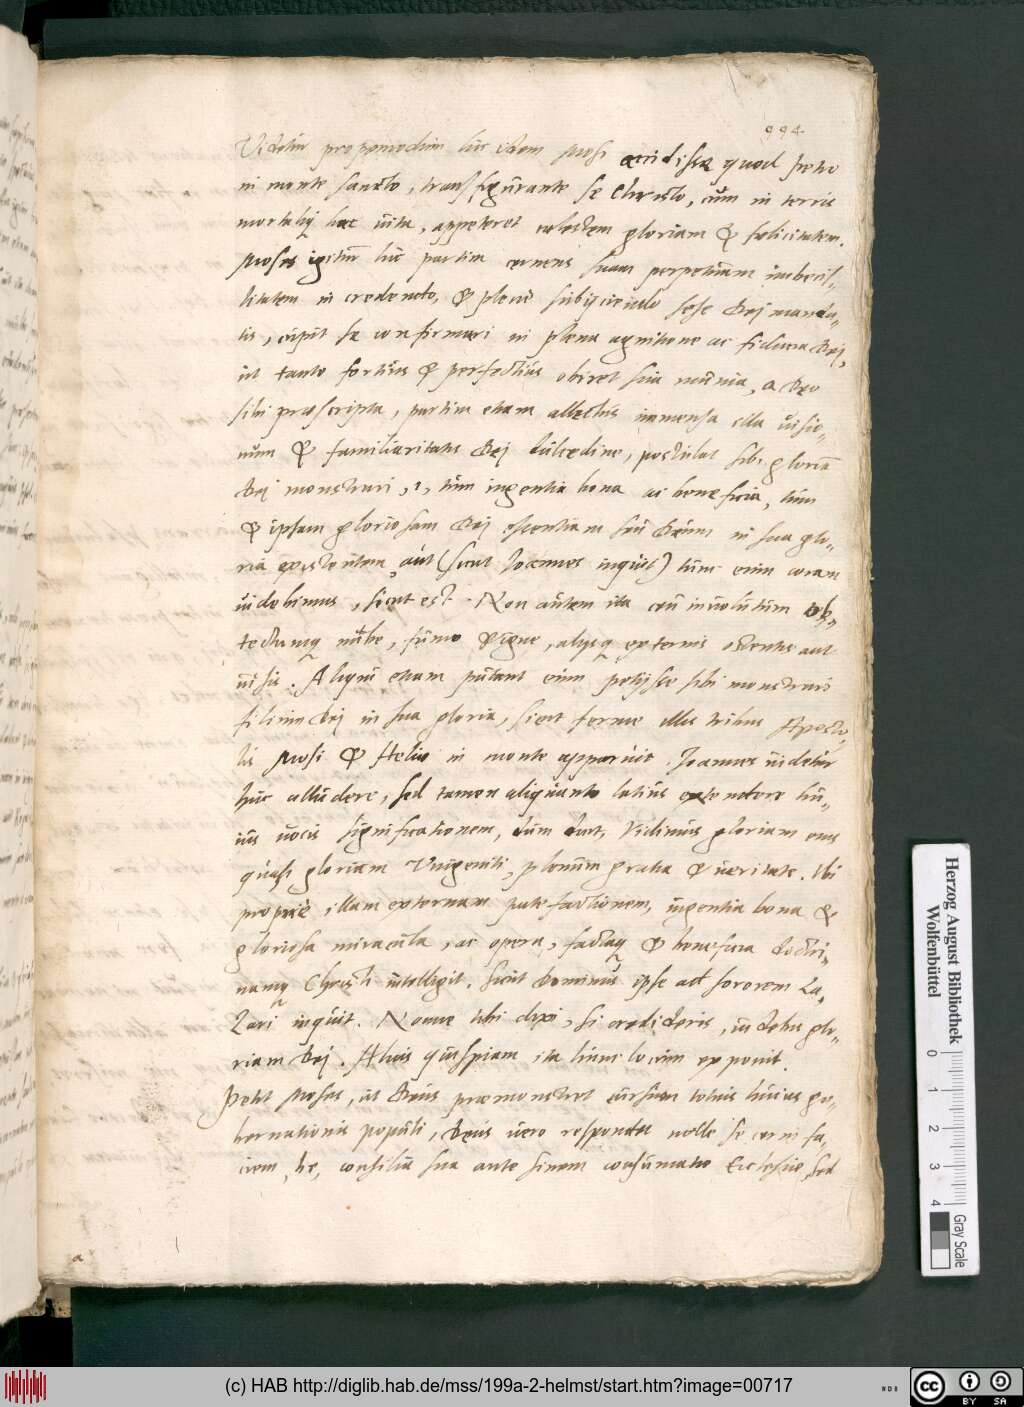 994
Videtur propemodum hic idem Mosi accidisse quod Petro
in monte sancto, transfigurante se Christo, cum in terris
mortaliq̃ hac vita, appeteret coelestem gloriam & foelicitatem.
Moses igitur hic partim cernens suam perpetuam imbecil-
litatem in credendo, & plene subijciendo sese Dei manda-
tis, cupit se confirmari in plena agnitione ac fiducia Dei,
ut tanto fortius & perfectius obiret sua munia, a Deo
sibi praescripta, partim etiam allectus immensa illa visio-
num & familiaritatis Dei dulcedine, postulat sibi gloriā
Dei monstrari, .i., tum ingentia bona ac beneficia, tum
& ipsam gloriosam Dei essentiam seu Deum in sua glo-
ria existentem, aut (sicut Joannes inquit) tunc enim coram
videbimus, sicut est. Non autem ita ceu involutum ob-
tectumq̃ nube, fumo & igne, alijsq̃ externis ostentis aut
visis. Aliqui etiam putant eum petijsse sibi monstrari
filium Dei in sua gloria, sicut ferme illis tribus Aposto-
lis Mosi & Heliae in monte apparuit. Joannes videtur
huc alludere, sed tamen aliquanto latius extendere hu-
ius vocis significationem, dum dicit, Vidimus gloriam eius
quasi gloriam Unigeniti, plenum gratia & veritate. Ubi
proprie illam externam patefactionem, ingentia bona &
gloriosa miracula, ac opera, factaq̃ & beneficia doctri-
namq̃ Christi intelligit. Sicut Dominus ipse ad sororem La-
zari inquit. Nonne tibi dixi, si credideris, videbis glo-
riam Dei. Alius quispiam ita hunc locum exponit.
Petit Moses, ut Deus praemonstret cursum totius huius gu-
bernationis populi, Deus vero respondet nolle se cerni fa-
ciem, he, consilia sua ante finem consumatio Ecclesiae, sed
a
Herzog August Bibliothek
Wolfenbüttel
0 1 2 3 4
Gray Scale
(c) HAB http://diglib.hab.de/mss/199a-2-helmst/start.htm?image=00717
cc BY SA